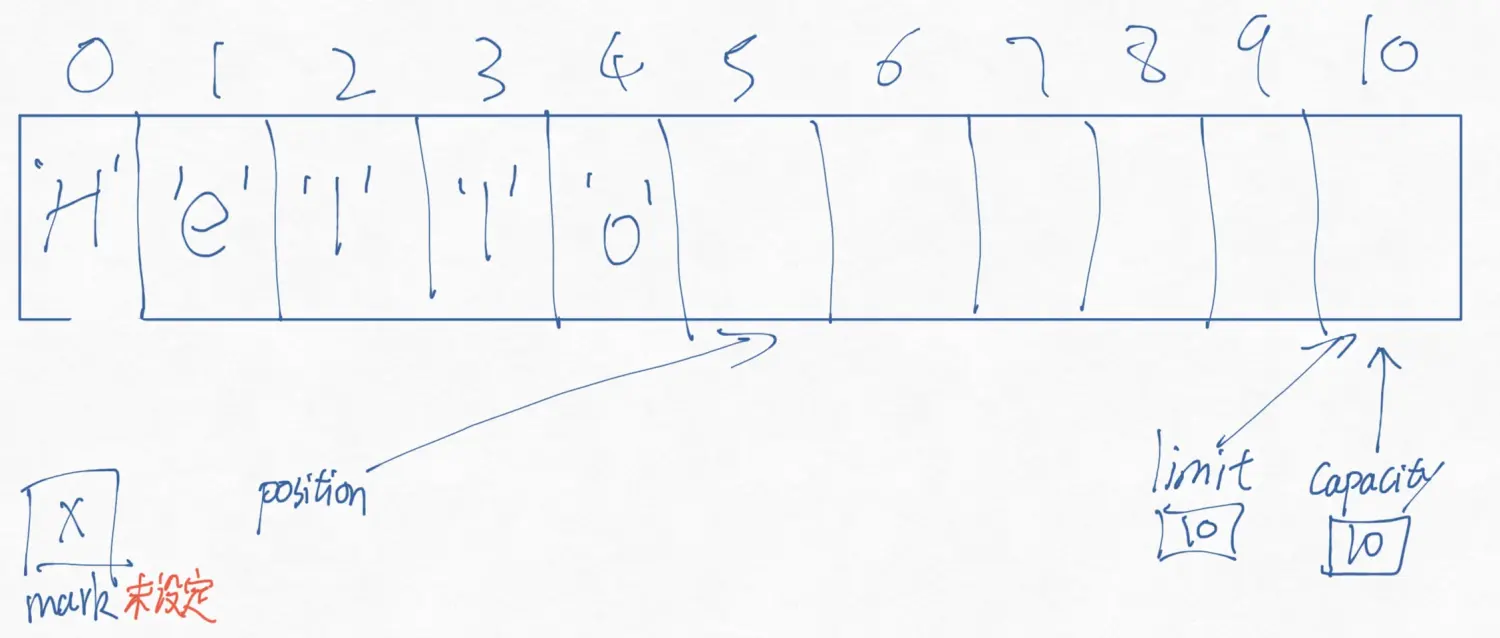 0 1 2 3 4 5 6 7 8 9 10
'H' 'e' 'l' 'l' 'o'
position
limit
10
capacity
10
X
mark 未设定